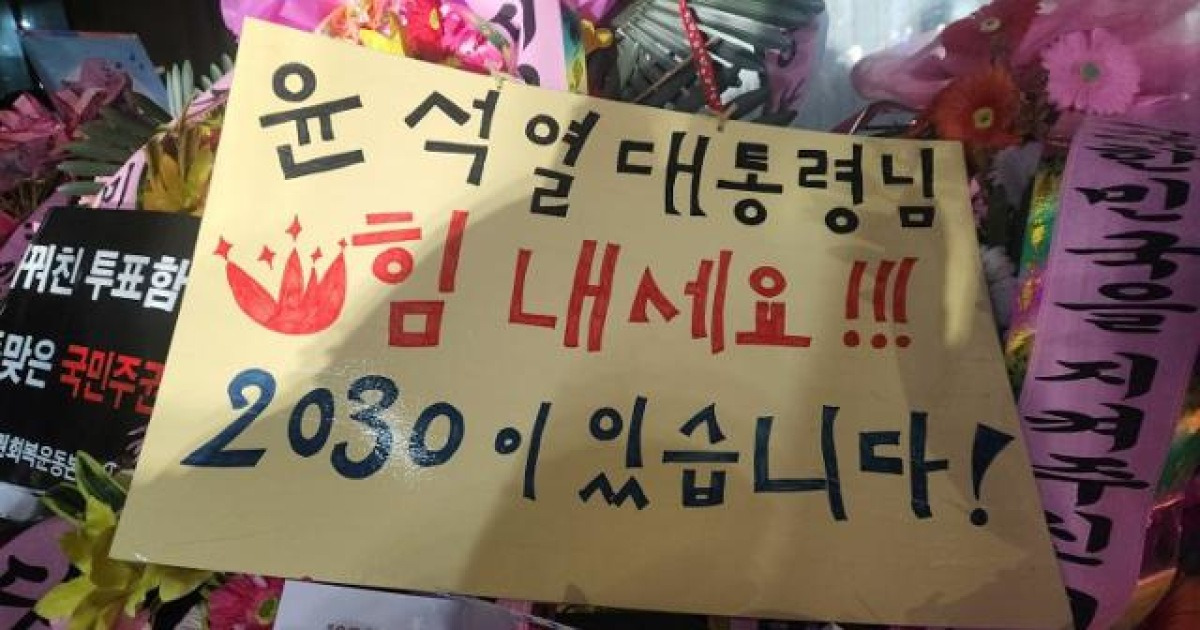 윤석열대통령님
힘 내세요!!!
2030이 있습니다!
꿔친 투표함
맞은 국민주권
회복운동본
민국을 지켜주신